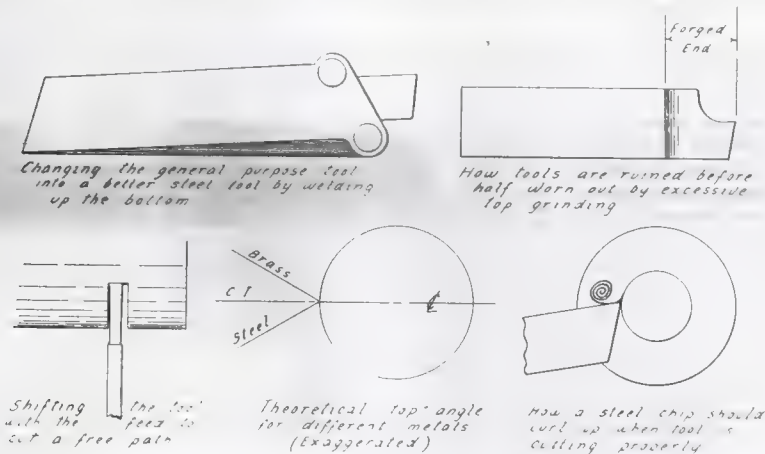 Forged
End
Changing the general purpose tool
into a better steel tool by welding
up the bottom
How tools are ruined before
half worn out by excessive
top grinding
Brass
C I
Steel
Shifting the tool
with the feed to
cut a free path
Theoretical top angle
for different metals
(Exaggerated)
How a steel chip should
curl up when tool is
cutting properly